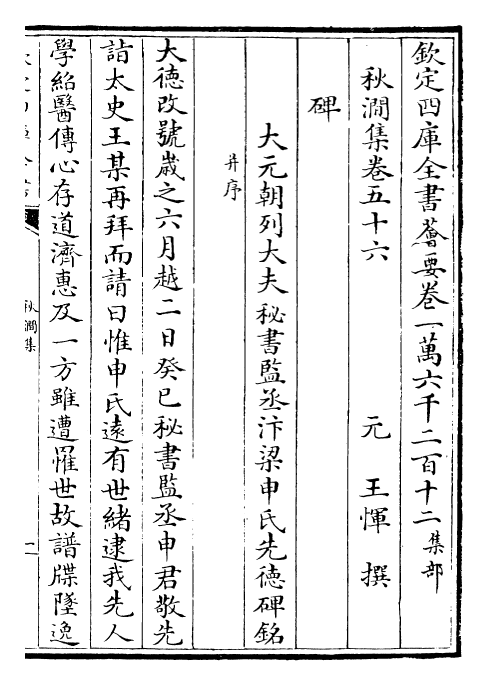 欽定四庫全書薈要卷一萬六千二百十二集部
秋澗集卷五十六　　　元　王惲　撰
碑
大元朝列大夫秘書監丞汴梁申氏先德碑銘
并序
大德改號歲之六月越二日癸巳秘書監丞申君敬先
詣太史王某再拜而請曰惟申氏遠有世緒逮我先人
學紹醫傳心存道濟惠及一方雖遭罹世故譜牒墜逸
秋澗集
一